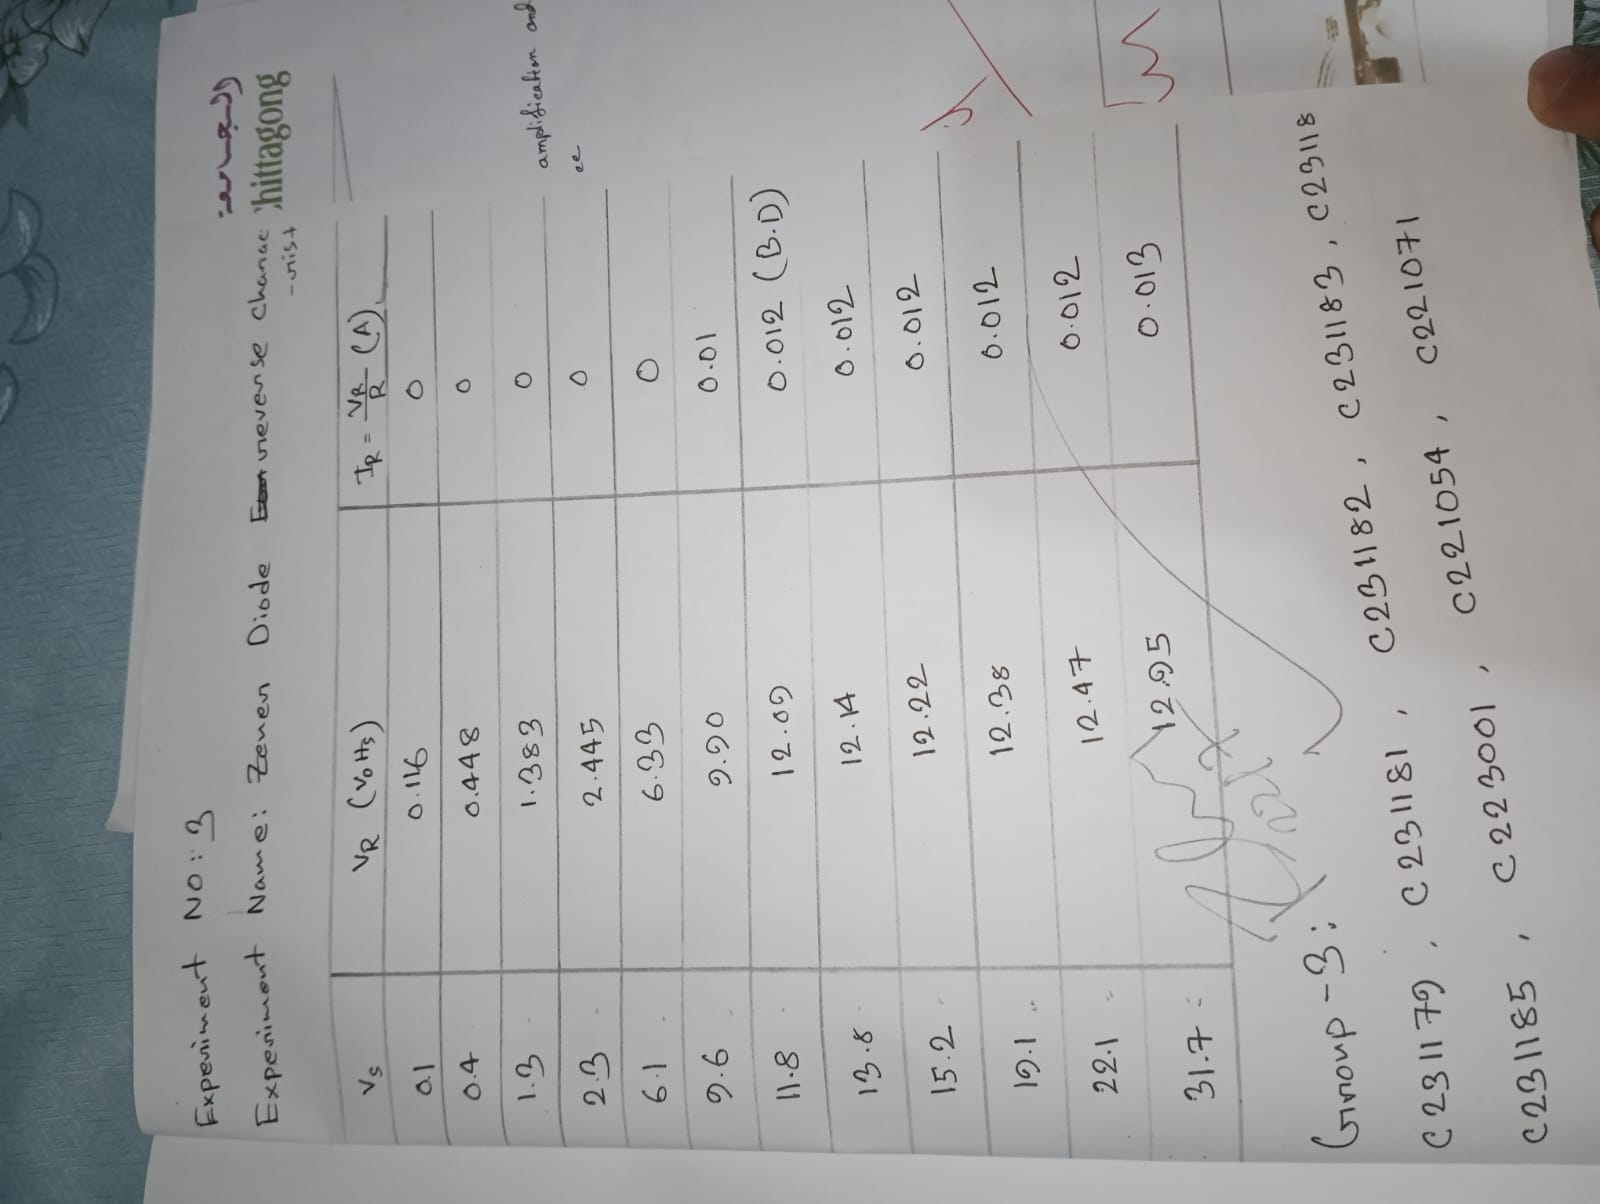 Experiment NO: 3
Experiment Name: Zener Diode reverse charac
-rist
hittagong
Vs VR (Volts) IR = VR/R (A)
0.1 0.116 0
0.4 0.448 0
1.3 1.383 0
2.3 2.445 0
6.1 6.33 0
9.6 9.90 0.01
11.8 12.09 0.012 (B.D)
13.8 12.14 0.012
15.2 12.22 0.012
19.1 12.38 0.012
22.1 12.47 0.012
31.7 12.95 0.013
amplification and
ce
Group-3:
C231179, C231181, C231182, C231183, C23118
C231185, C223001, C221054, C221071